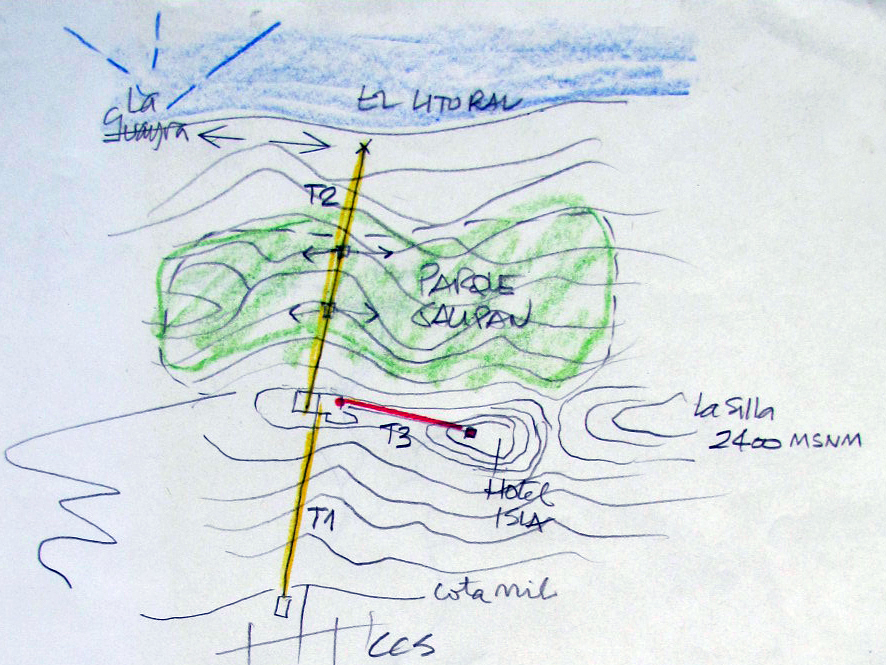 La
Guayra
EL LITORAL
T2
PARQUE
GALIPAN
La Silla
2400 MSNM
T3
Hotel
ISLA
T1
cota mil
CCS